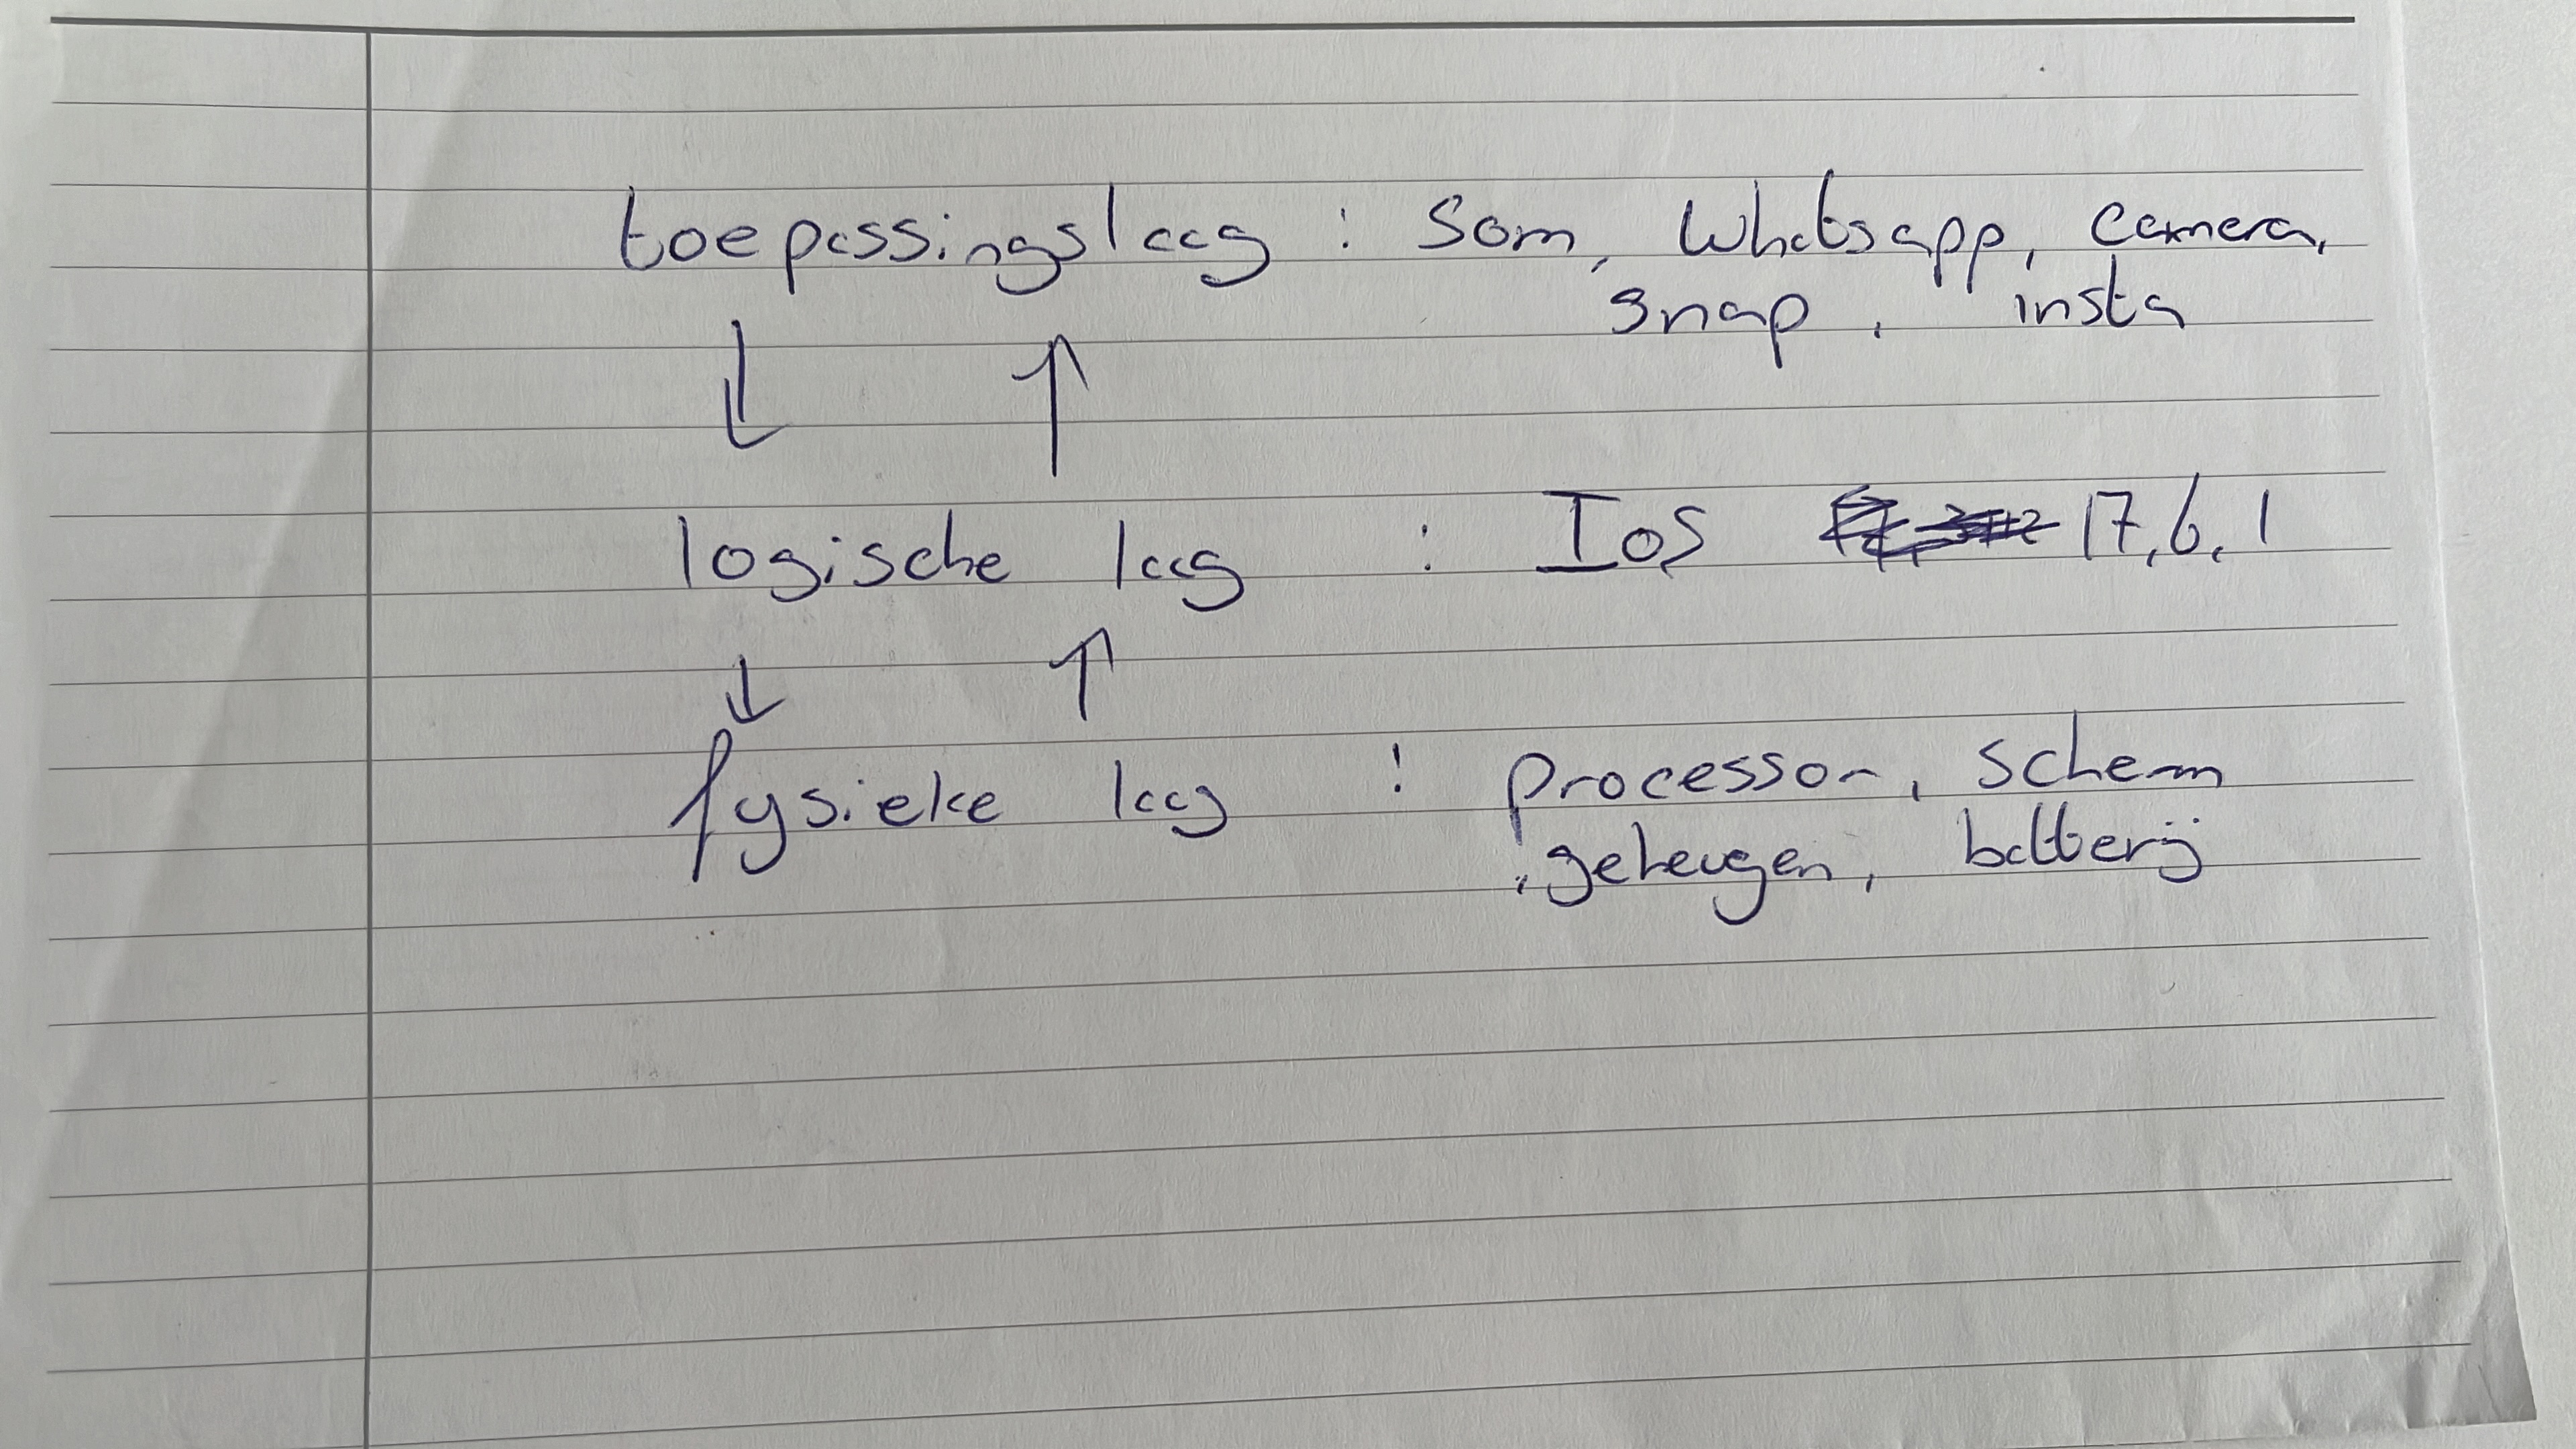 toepassingslaag : Som, Whatsapp, camera,
snap, insta
↓ ↑
logische laag : IOS 17,6,1
↓ ↑
fysieke lag : Processor, scherm
, geheugen, batterij